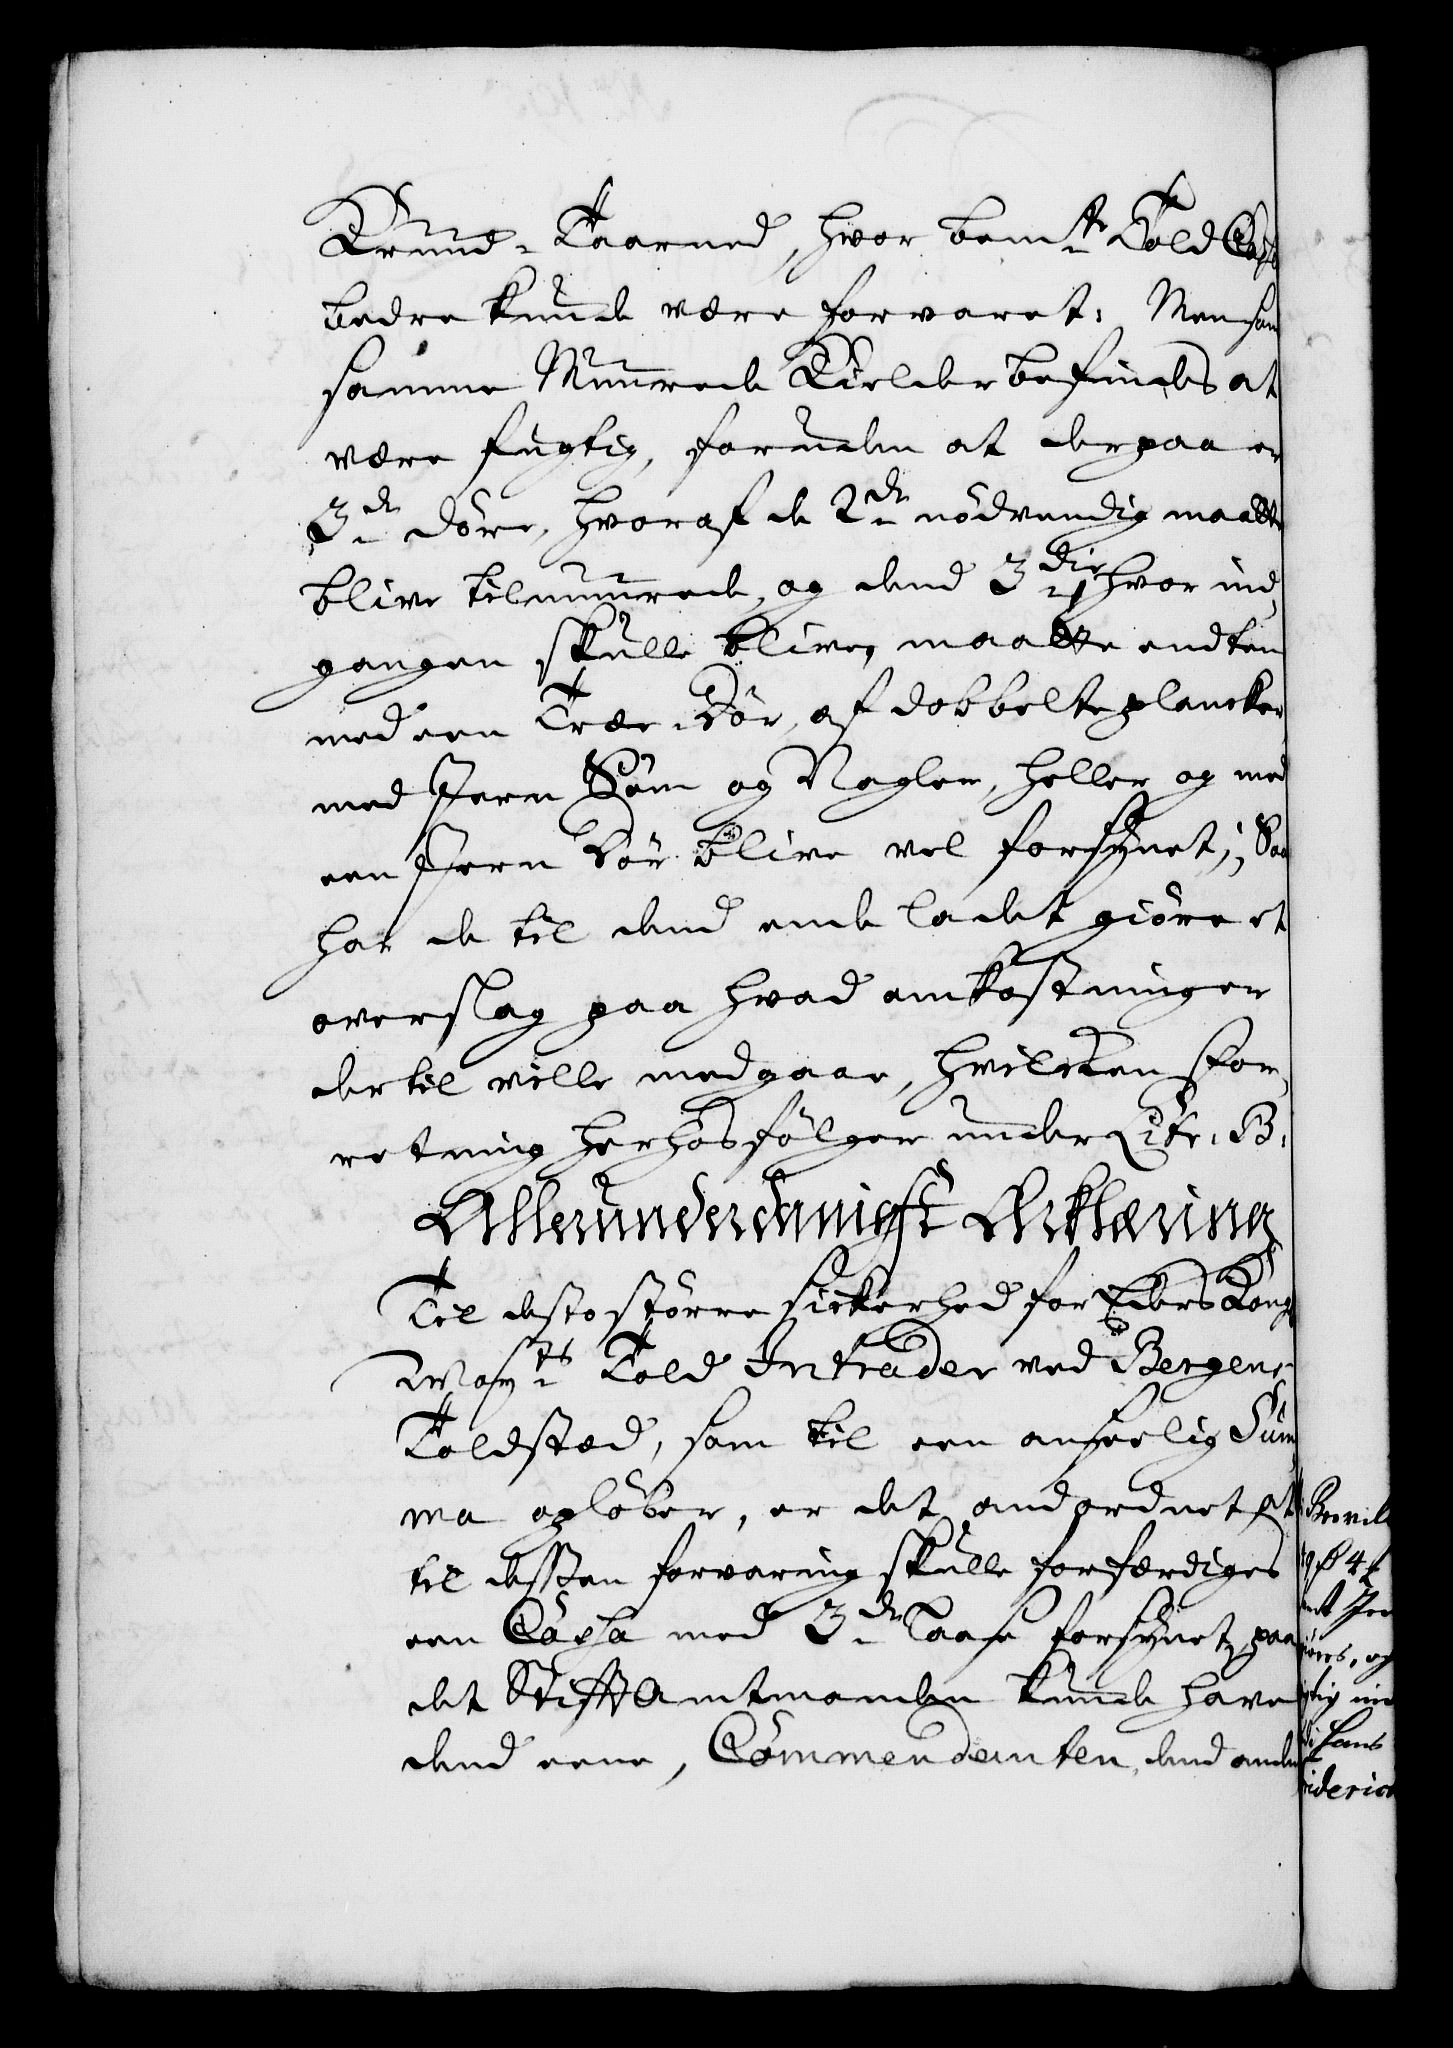 Krund-Taarned, hvor bemte Told Cassa
bedre kunde være forvaret: Men som
samme Muurede Kielder befindes at
være fugtig, foruden at derpaa er
3de döre, hvoraf de 2de nödvendig maatte
blive tilmuurede, og dend 3die hvor ind-
gangen skulle blive, maatte endten
med een Træe-Dör, af dobbelte plancker
med Jern Söm og Nagler, heller og med
een Jern Dör blive vel forsÿnet; Saa
har de til dend ende ladet giöre et
overslag paa hvad omkostninger
dertil ville medgaae, hvilcken for-
retning herhos fölger under Litr: B:
Allerunderdanigst Erklæring
Til desto större sickerhed for Eders Kongl
Mayts Told Intrader ved Bergens
Toldsted, som til een anseelig Sum-
ma oplöber, er det andordnet at
til dessen forvaring skulle forfærdiges
een Cassa med 3de Laase forsÿnet, paa
det StifftAmtmanden kunde have
dend eene, Commendanten, dend anden